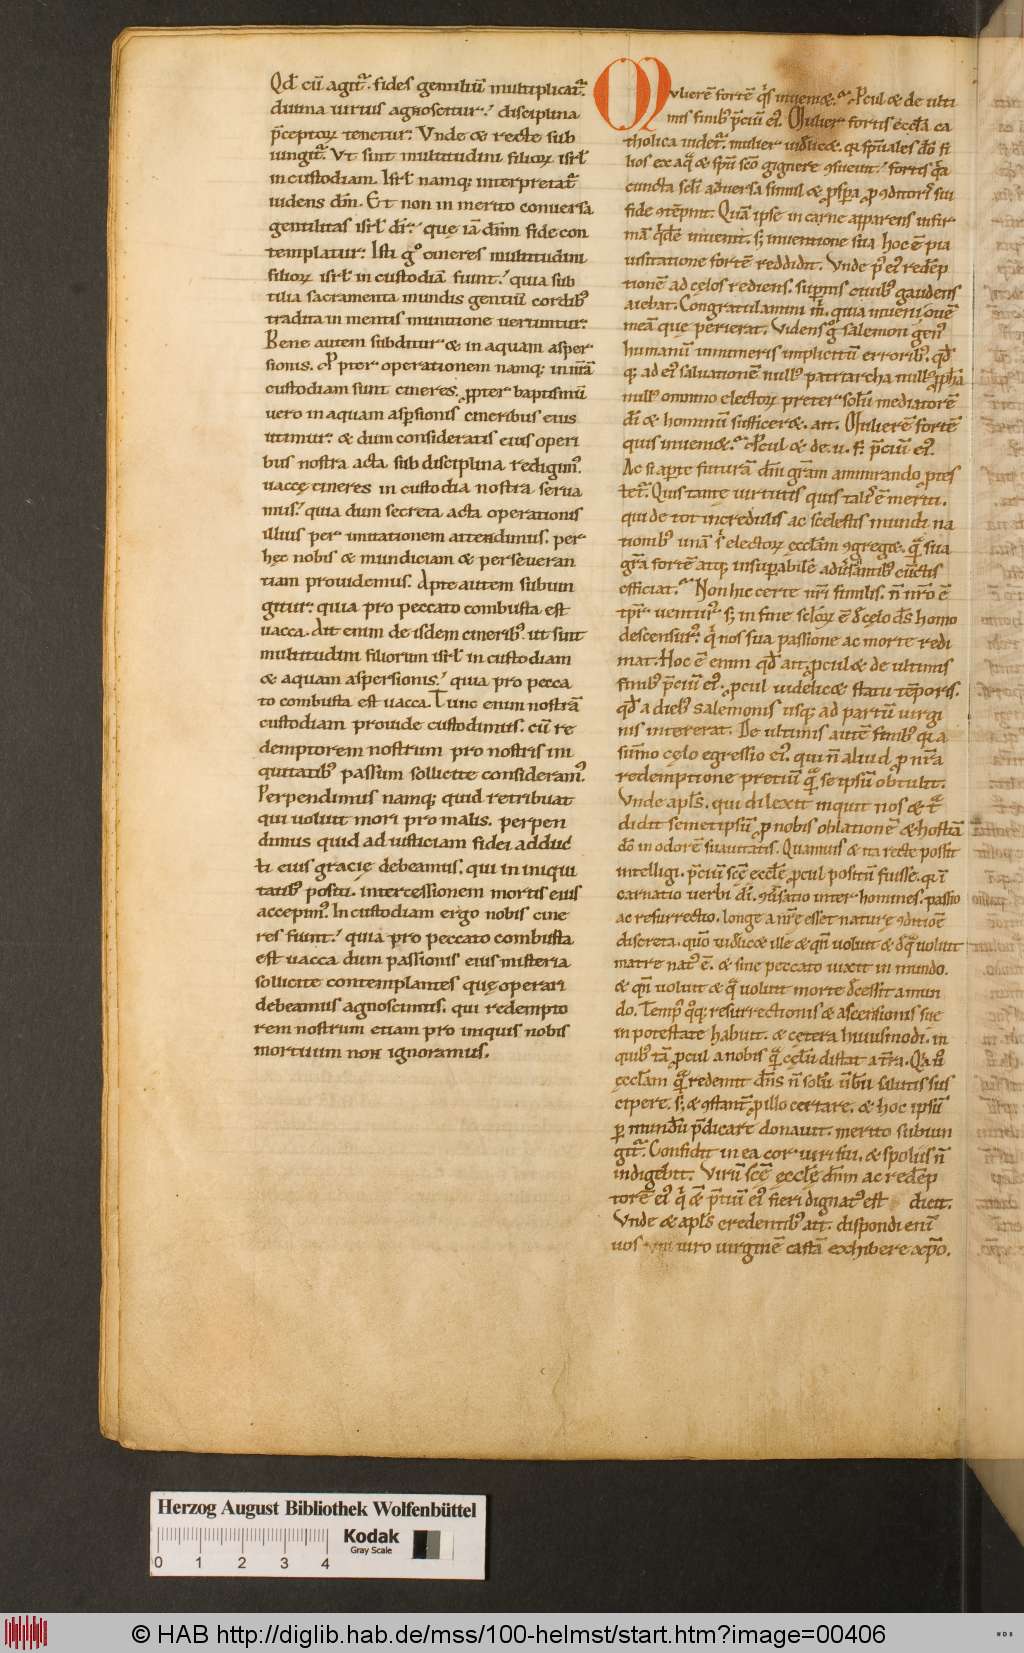 Qd̄ cū agit᷑. fides gentiliū multiplicat᷑.
diuina uirtus agnoscitur. disciplina
p̄ceptoꝝ tenetur. Vnde & recte sub
iungit᷑. Vt sint multitudini filioꝝ isrl̄
in custodiam. Isrl̄ namq; interpretat᷑
uidens dm̄. Et non in merito conuersa
gentilitas isrl̄ dr̄. quę iā dn̄m fide con
templatur. Isti gͦ cineres multitudini
filioꝝ isrl̄ in custodiā fiunt. quia sub
tilia sacramenta mundis gentiū cordibꝰ
tradita in mentis munitione ueruntur.
Bene autem subditur & in aquam asper
sionis. Ꝓpter operationem namq; in nr̄ā
custodiam sunt cineres. ꝓpter baptismū
uero in aquam asp̱sionis. Cineribus eius
utimur. & dum consideratis eius operi
bus nostra acta sub disciplina redigimꝰ.
uaccę cineres in custodia nostra serua
mus. quia dum secreta acta operationis
illius per imitationem attendimus. per
hęc nobis & mundiciam & perseueran
tiam prouidemus. Apte autem subiun
gitur. quia pro peccato combusta est
uacca. Ait enim de isdem cineribꝰ. ut sint
multitudini filiorum isrl̄ in custodiam
& aquam aspersionis. quia pro pecca
to combusta est uacca. Tunc enim nostrā
custodiam prouide custodimus. cū re
demptorem nostrum pro nostris ini
quitatibꝰ passum sollicite consideramꝰ.
Perpendimus namq; quid retribuat
qui uoluit mori pro malis. perpen
dimus quid ad iusticiam fidei adduc
ti eius gracię debeamus. qui in iniqui
tatibꝰ positi. intercessionem mortis eius
accepimꝰ. In custodiam ergo nobis cine
res fiunt. quia pro peccato combusta
est uacca dum passionis eius misteria
sollicite contemplantes quę operari
debeamus agnoscimus. qui redempto
rem nostrum etiam pro iniquis nobis
mortuum non ignoramus.
Mvlierē fortē qͥs inueni&. Ꝓcul & de ulti
mis finibꝰ p̄ciū eiꝰ. Mulier fortis eccl̄a ca
tholica uidet᷑. mulier uidelic&. qa sp̄uales dō fi
lios ex aq̄ & sp̄u sc̄o gignere ꝯsueuit. fortis qa
cuncta scl̄i aduersa simul & ꝓspa ꝓ ꝯditoris sui
fide ꝯtēpnit. Quā ipse in carne apparens infir
mā qͥdē inuenit. s; inuentione sua hoc ē pia
uisitatione fortē reddidit. Vnde p̱ eiꝰ redēp
tionē ad cęlos rediens. supnis ciuibꝰ gaudens
aiebat. Congratulamini m̄. quia inueni ouē
meā que perierat. Videns gͦ salemon genꝰ
humanū innumeris implicitū erroribꝰ. qd̄
q; ad eiꝰ saluationē nullꝰ patriarcha nullꝰ ꝓph̄a
nullꝰ omnino electoꝝ preter solū mediatorē
dī & hominū suffic&. ait. Mulierē fortē
quis inueni&. Ꝓcul & de. u. f. p̄ciū eiꝰ.
Ac si apte futurā dm̄ gr̄am ammirando ꝓtes
tet᷑. Quis tantę uirtutis quis talis ē meriti.
qui de tot incredulis ac scelestis mundi na
tionibꝰ unā s electoꝝ ęccl̄am ꝯgreg&. quā sua
gr̄a fortē atq; insuperabilē aduersantibꝰ cūctis
efficiat. Non hic certe nr̄i similis. n̄ nr̄o ē
tp̄r uenturꝰ s; in fine scl̄oꝝ ē de cęlo ds̄ homo
descensurꝰ. qͥ nos sua passione ac morte redi
mat. Hoc ē enim qd̄ ait. ꝓcul & de ultimis
finibꝰ p̄ciū eiꝰ. ꝓcul uidelic& statu tēporis.
qd̄ a diebꝰ salemonis usq; ad partū uirgi
nis intererat. De ultimis autē finibꝰ qa a
sūmo cęlo egressio eiꝰ. qui n̄ aliud ꝓ nr̄a
redemptione pretiū quā se ipsū obtulit.
Vnde apl̄s. qui dilexit inquit nos & t
didit semetipsū ꝓ nobis oblationē & hostiā
dō in odorē suauitatis. Quamuis & ita recte possit
intelligi. p̄ciū scę̄ eccl̄ę ꝓcul positū fuisse. qa in
carnatio uerbi dī. ꝯuersatio inter homines. passio
ac resurrectio. longe a nr̄e esset naturę ꝯditiōe
discreta. quo uidelic& ille & qn̄ uoluit & de qua uoluit
matre natꝰ ē. & sine peccato uixit in mundo.
& qn̄ uoluit & qua uoluit morte decessit a mun
do. Tempꝰ qͦq; resurrectionis & ascensionis suę
in potestate habuit. & cętera huiusmodi. in
quibꝰ tā ꝓcul a nobis quā cęlū distat a tr̄a. Qa u
ęccl̄am quā redemit dn̄s n̄ solū u̅bū salutis sus
cipere. s; & ꝯstant ꝓ illo certare. & hoc ipsū
ꝑ mundū p̄dicare donauit. merito subiun
git᷑. Confidit in ea cor uiri sui. & spoliis n̄
indigebit. Virū scę̄ ęccl̄ę dn̄m ac redēp
torē eiꝰ qͥ & p̄tiū eiꝰ fieri dignatꝰ est dicit.
Vnde & apl̄s credentibꝰ ait. dispondi eni
uos uni uiro uirginē castā exhibere xp̄o.
Herzog August Bibliothek Wolfenbüttel
Kodak
Gray Scale
0 1 2 3 4
© HAB http://diglib.hab.de/mss/100-helmst/start.htm?image=00406